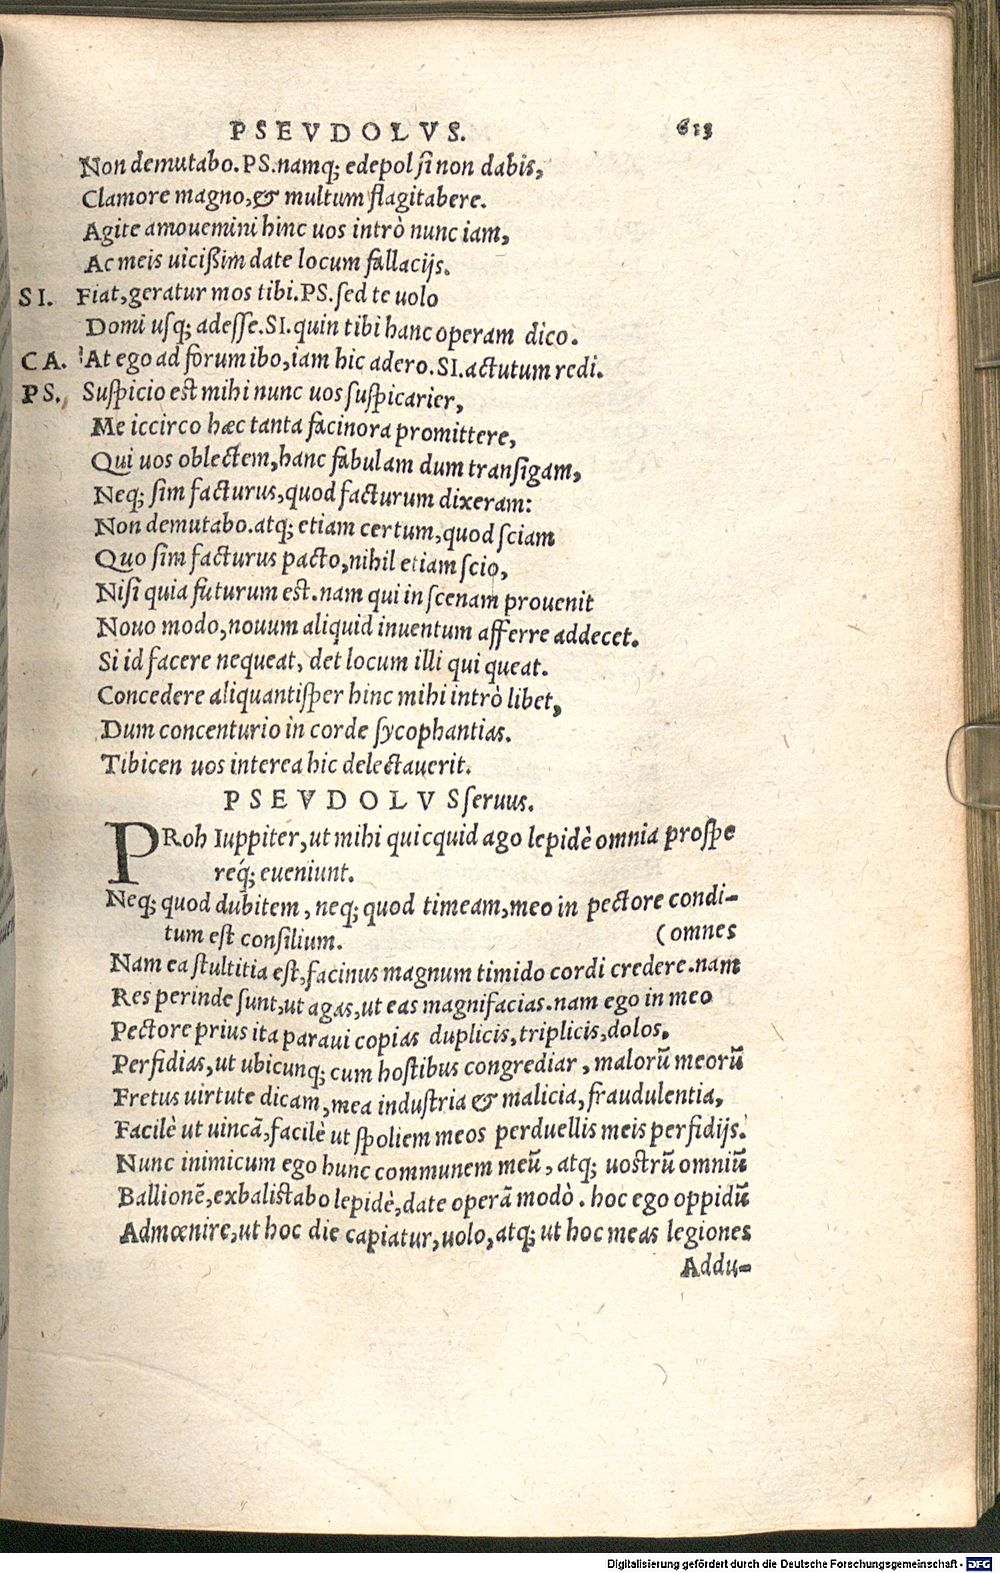 PSEVDOLVS. 613
Non demutabo. PS. namq; edepol si non dabis,
Clamore magno, & multum flagitabere.
Agite amouemini hinc uos intrò nunc iam,
Ac meis uicißim date locum fallacijs.
SI. Fiat, geratur mos tibi. PS. sed te uolo
Domi usq; adesse. SI. quin tibi hanc operam dico.
CA. At ego ad forum ibo, iam hic adero. SI. actutum redi.
PS. Suspicio est mihi nunc uos suspicarier,
Me iccirco hæc tanta facinora promittere,
Qui uos oblectem, hanc fabulam dum transigam,
Neq; sim facturus, quod facturum dixeram:
Non demutabo. atq; etiam certum, quod sciam
Quo sim facturus pacto, nihil etiam scio,
Nisi quia futurum est. nam qui in scenam prouenit
Nouo modo, nouum aliquid inuentum afferre addecet.
Si id facere nequeat, det locum illi qui queat.
Concedere aliquantisper hinc mihi intrò libet,
Dum concenturio in corde sycophantias.
Tibicen uos interea hic delectauerit.
PSEVDOLVS seruus.
PRoh Iuppiter, ut mihi quicquid ago lepidè omnia prospe
req́; eueniunt.
Neq; quod dubitem, neq; quod timeam, meo in pectore condi-
tum est consilium. (omnes
Nam ea stultitia est, facinus magnum timido cordi credere. nam
Res perinde sunt, ut agas, ut eas magnifacias. nam ego in meo
Pectore prius ita paraui copias duplicis, triplicis, dolos,
Perfidias, ut ubicunq; cum hostibus congrediar, malorũ meorũ
Fretus uirtute dicam, mea industria & malicia, fraudulentia,
Facilè ut uincã, facilè ut spoliem meos perduellis meis perfidijs.
Nunc inimicum ego hunc communem meũ, atq; uostrũ omniũ
Ballionẽ, exbalistabo lepidè, date operã modò. hoc ego oppidũ
Admœnire, ut hoc die capiatur, uolo, atq; ut hoc meas legiones
Addu-
Digitalisierung gefördert durch die Deutsche Forschungsgemeinschaft - DFG